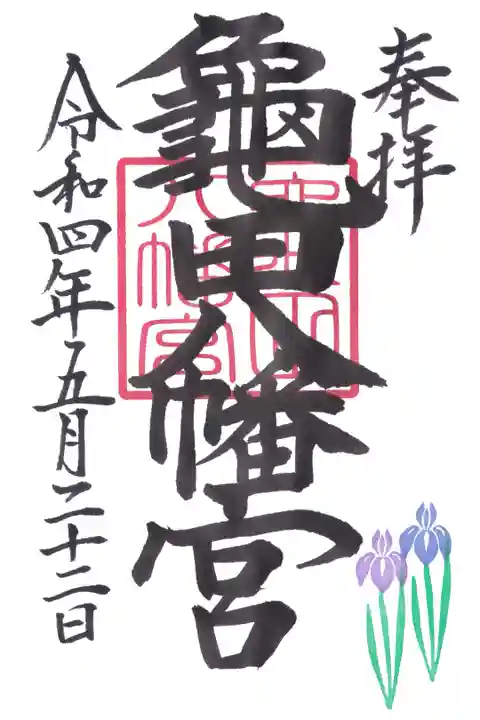 奉拝
龜田八幡宮
令和四年五月二十二日
八幡宮